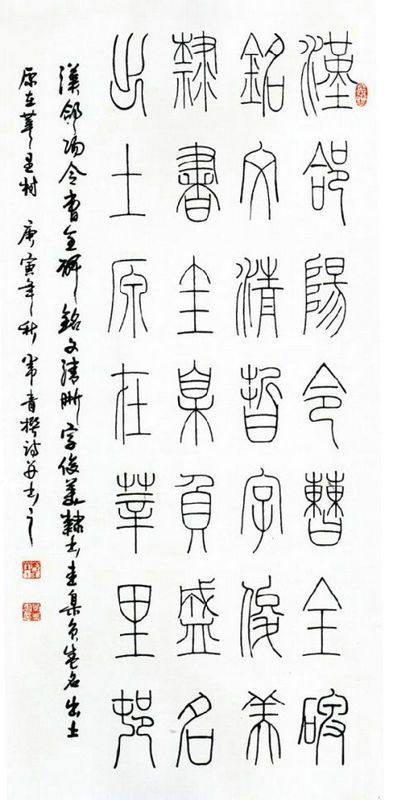 漢郃陽令曹全碑
銘文清晳字俊美
隸書圭臬負盛名
出土原在莘里邨
漢郃陽令曹全碑銘文清晰字俊美隸書圭臬負盛名出土
原在莘里村 庚寅年秋 常青撰詩并書之